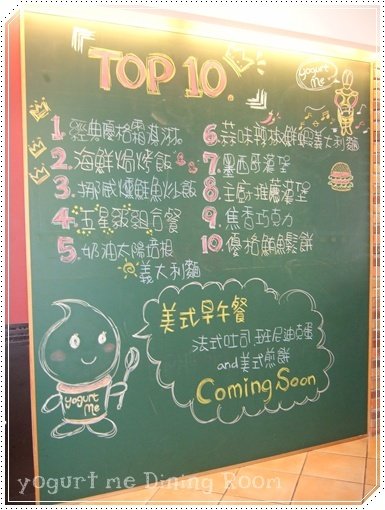 TOP 10.
yogurt Me
1. 經典優格霜淇淋
2. 海鮮焗烤飯
3. 挪威燻鮭魚炒飯
4. 五星級組合餐
5. 奶油太陽培根
義大利麵
6. 蒜味辣椒鮮蝦義大利麵
7. 墨西哥漢堡
8. 主廚推薦漢堡
9. 焦香巧克力
10. 優格鮪魚鬆餅
美式早午餐
法式吐司 班尼迪克蛋
and美式煎餅
Coming Soon
yogurt
Me
yogurt me Dining Room